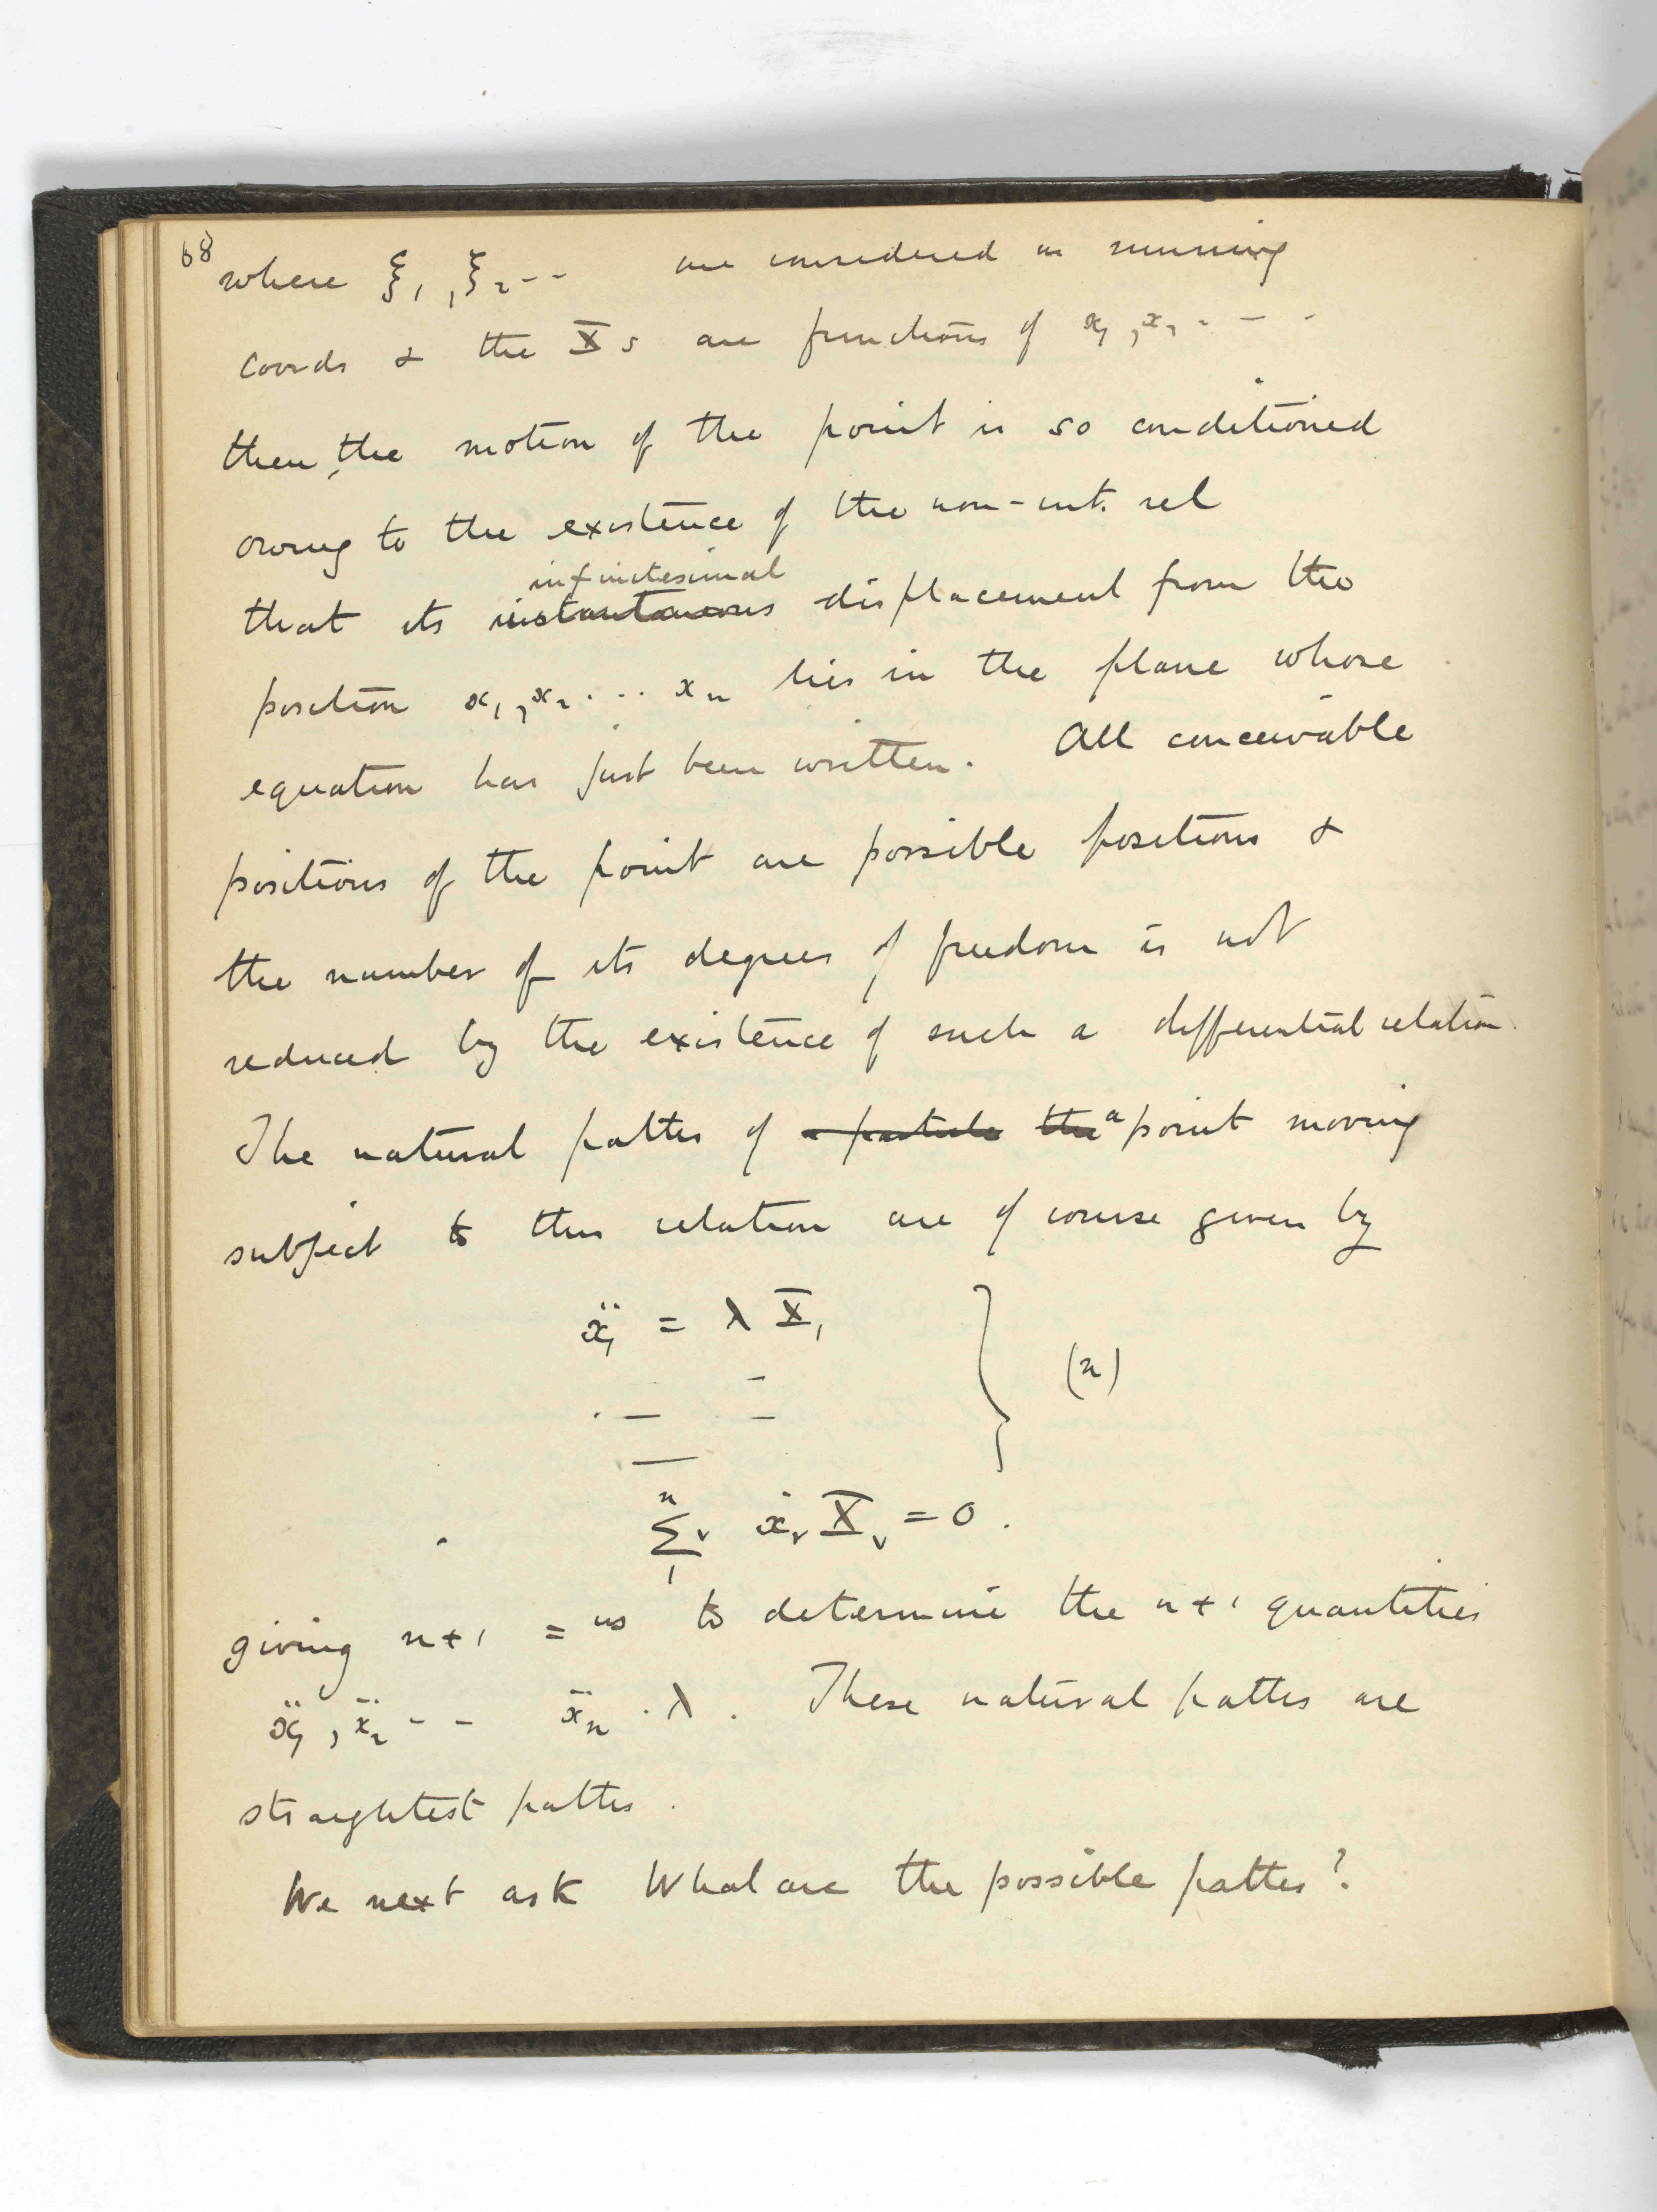 68
where ξ₁, ξ₂ - - are considered as running
coords & the Xs are functions of x₁, x₂ - - -
then, the motion of the point is so conditioned
owing to the existence of the non-int. rel
infinitesimal
that its instantaneous displacement from the
position x₁, x₂ . . . xₙ lies in the plane whose
equation has just been written. All conceivable
positions of the point are possible positions &
the number of its degrees of freedom is not
reduced by the existence of such a differential relation.
The natural paths of a particle the a point moving
subject to this relation are of course given by
ẍ₁ = λ X₁ } (n)
. — —
—
n
∑ᵥ ẋᵥ Xᵥ = 0.
1
giving n+1 = ns to determine the n+1 quantities
ẍ₁, ẍ₂ - - ẍₙ . λ. These natural paths are
straightest paths.
We next ask What are the possible paths?